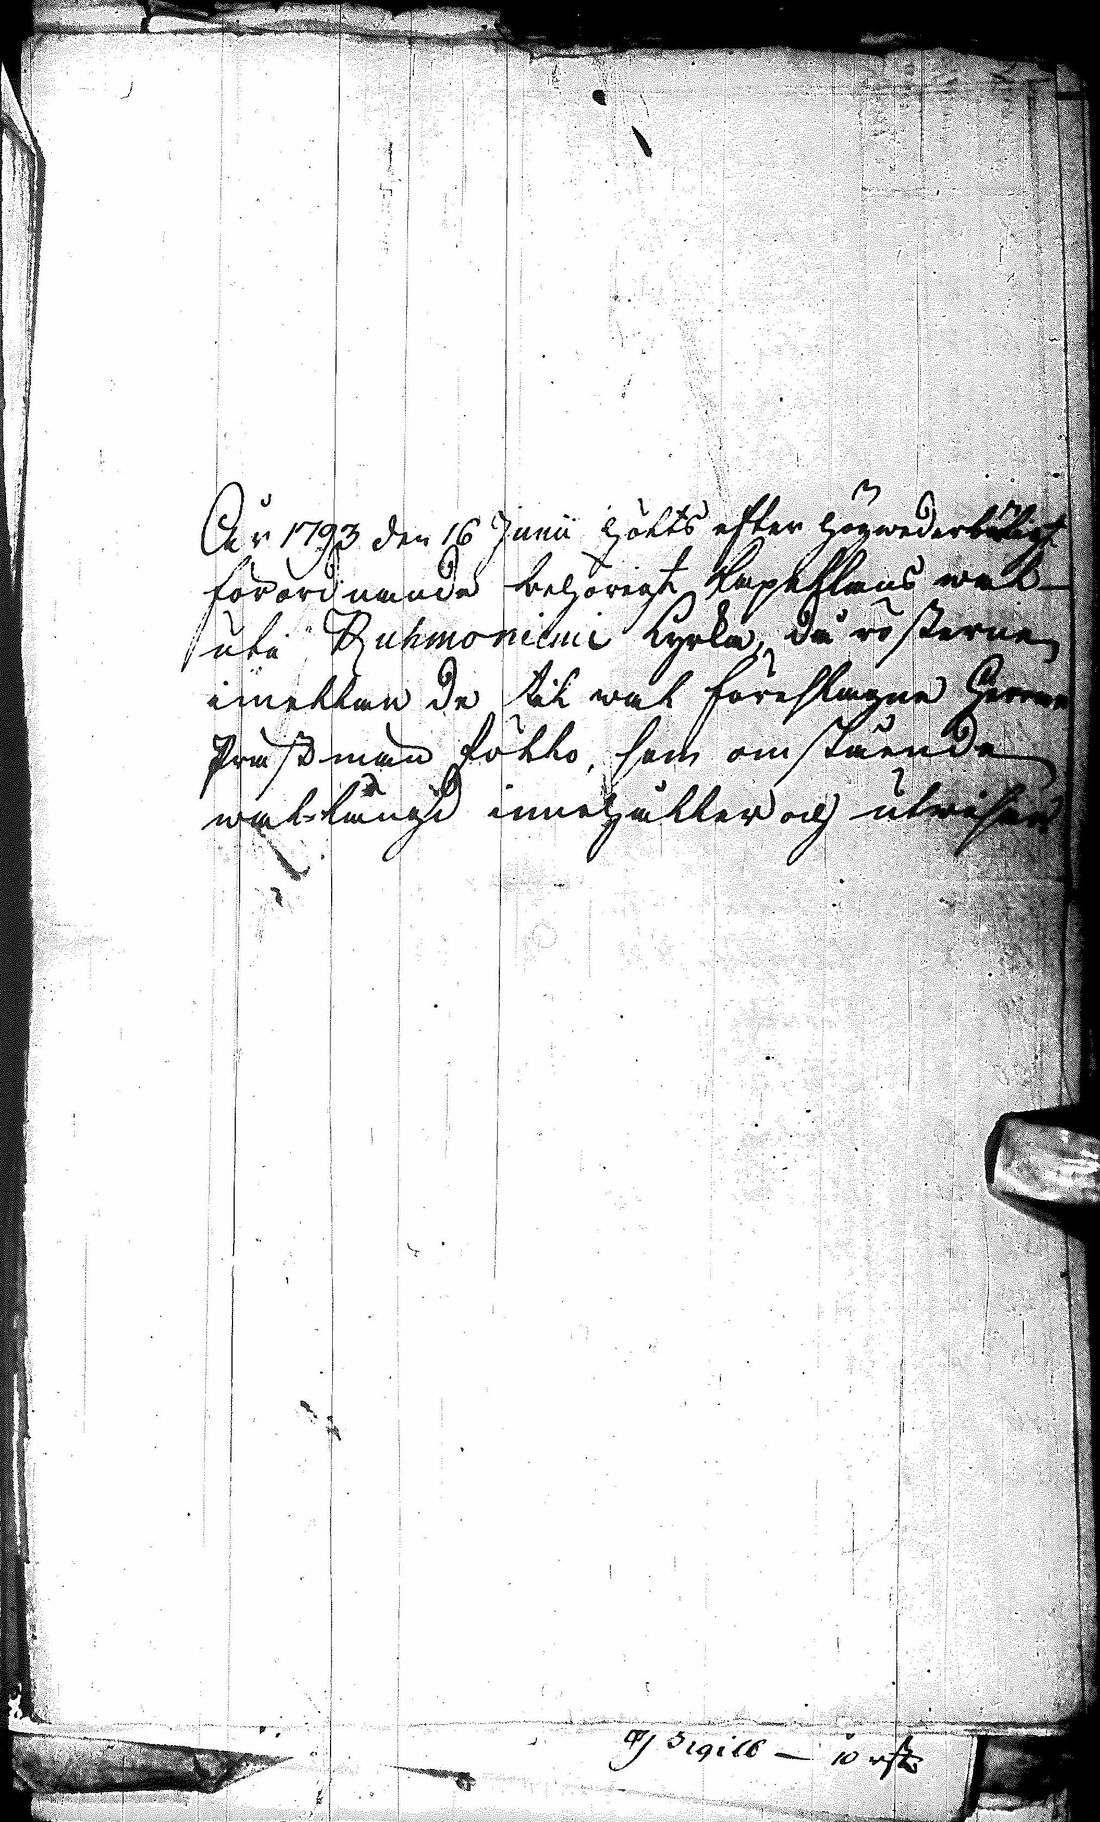 År 1793 den 16 Junii hölts efter Högwederbörligt
förordnande behörigt Kapellans wal
uti Ruhmoniemi Kyrka, då rösterne
imellan de til wal föreslagne Herrar
Prästmän fölto, som omstående
wal-längd innehåller och utwisar
Sigill — 10 rst